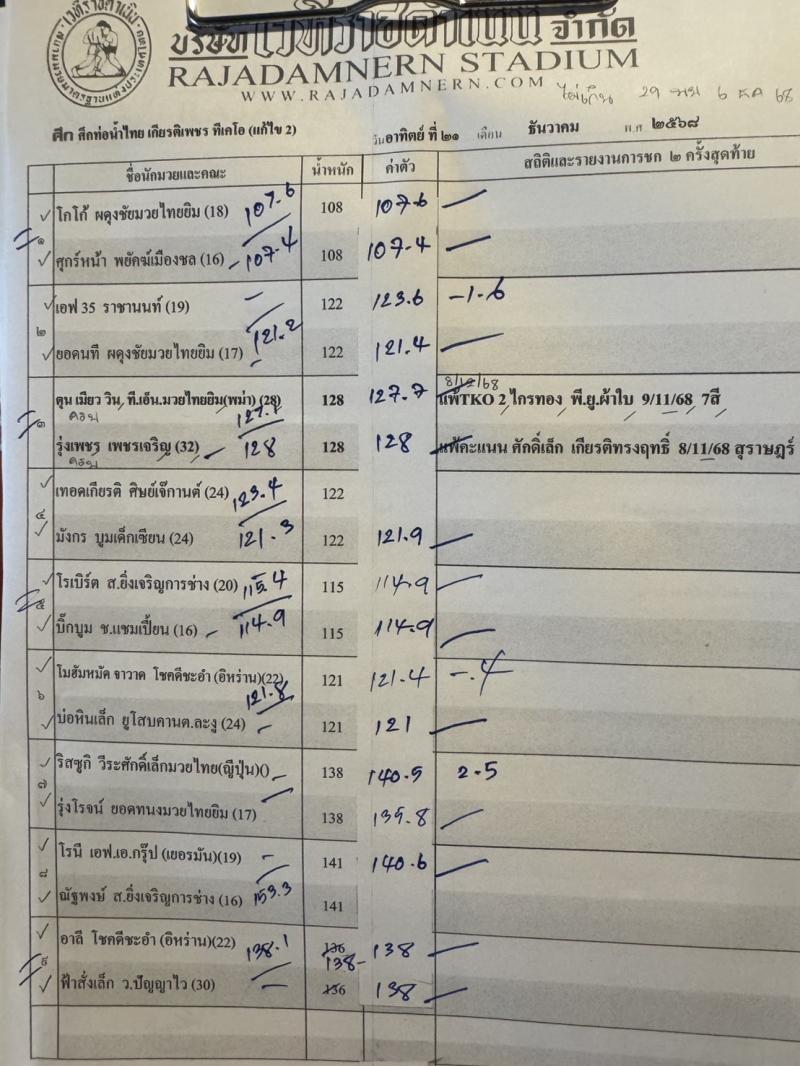 บริษัท เวทีราชดำเนิน จำกัด
RAJADAMNERN STADIUM
WWW.RAJADAMNERN.COM
ไม่เกิน 29 6 ธค 68
ศึก ศึกท่อน้ำไทย เกียรติเพชร ทีเคโอ (แก้ไข 2) วันอาทิตย์ ที่ ๒๑ เดือน ธันวาคม พ.ศ ๒๕๖๘
ชื่อนักมวยและคณะ น้ำหนัก ค่าตัว สถิติและรายงานการชก ๒ ครั้งสุดท้าย
๑
โกโก้ ผดุงชัยมวยไทยยิม (18) 107.6 108 107.6
ศุกร์หน้า พยัคฆ์เมืองชล (16) 107.4 108 107.4
๒
เอฟ 35 ราชานนท์ (19) 122 123.6 -1.6
ยอดนที ผดุงชัยมวยไทยยิม (17) 121.2 122 121.4
๓
ตุน เมียว วิน, ที.เอ็น.มวยไทยยิม(พม่า) (28) 128 127.7 แพ้TKO 2 ไกรทอง พี.ยู.ผ้าใบ 9/11/68 7สี
8/12/68
รุ่งเพชร เพชรเจริญ (32) 128 128 128 แพ้คะแนน ศักดิ์เล็ก เกียรติทรงฤทธิ์ 8/11/68 สุราษฎร์
๔
เทอดเกียรติ ศิษย์เจ๊กานต์ (24) 123.4 122
มังกร บูมเด็กเซียน (24) 121.3 122 121.9
๕
โรเบิร์ต ส.ยิ่งเจริญการช่าง (20) 115.4 115 114.9
บิ๊กบูม ช.แชมเปี้ยน (16) 114.9 115 114.9
๖
โมฮัมหมัด จาวาด โชคดีชะอำ (อิหร่าน)(22) 121.8 121 121.4 -.4
บ่อหินเล็ก ยูโสบคานต.ละงู (24) 121 121
๗
ริสซูกิ วีระศักดิ์เล็กมวยไทย(ญี่ปุ่น)() 138 140.5 2.5
รุ่งโรจน์ ยอดทนงมวยไทยยิม (17) 138 135.8
๘
โรนี เอฟ.เอ.กรุ๊ป (เยอรมัน)(19) 141 140.6
ณัฐพงษ์ ส.ยิ่งเจริญการช่าง (16) 141
๙
อาลี โชคดีชะอำ (อิหร่าน)(22) 138.1 136 138 138
ฟ้าสั่งเล็ก ว.ปัญญาไว (30) 136 138